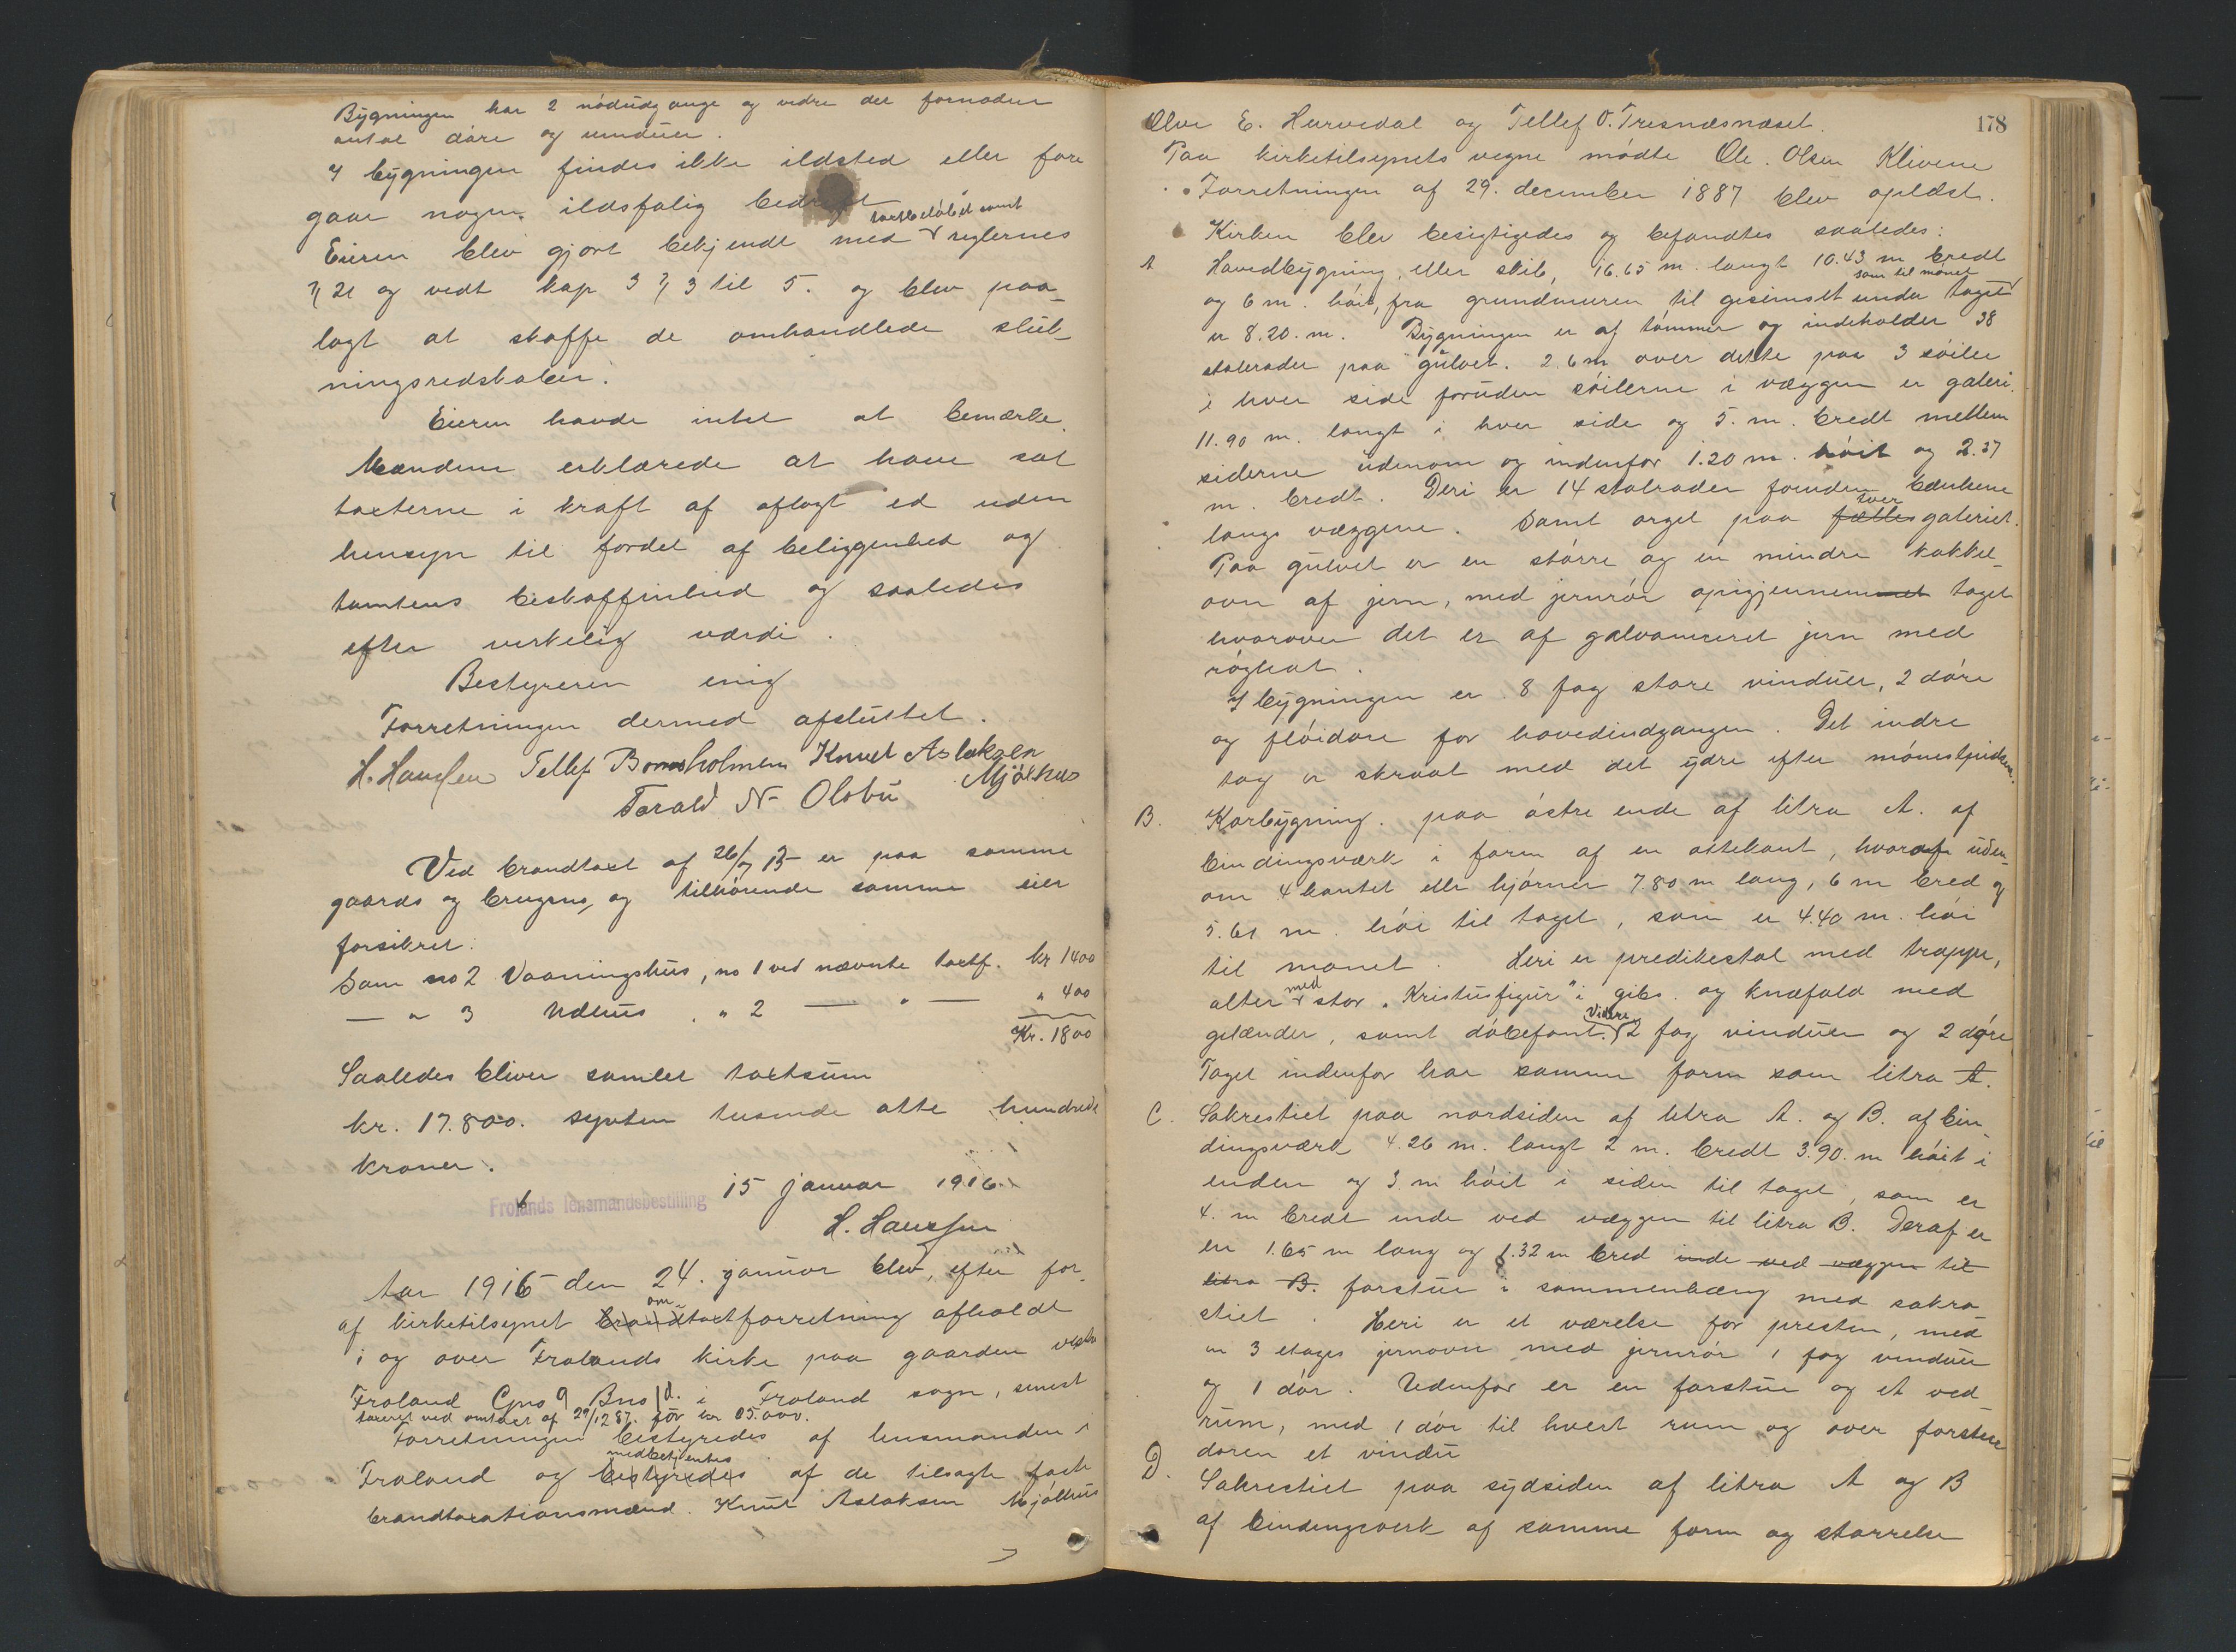 Bygningen har 2 nödudgange og vidre det fornødne
antal döre og vinduer.
I bygningen findes ikke ildsted eller fore
gaar nogen ildsfalig bedrift
taxtbeløbet samt
Eieren blev gjort bekjendt med reglernes
§ 21 og vedt kap 3 § 3 til 5. og blev paa-
lagt at skaffe de omhandlede sluk-
ningsredskaber.
Eieren havde intet at bemærke.
Mændene erklærede at have sat
taxterne i kraft af aflagt ed uden
hensyn til fordel af beliggenhed og
tomtens beskaffenhed og saaledes
efter virkelig værdi.
Bestyreren enig
Forretningen dermed afsluttet.
H. Haussen Tellef Bomsholmen Knut Aslaksen
Mjölhus
Torald N. Olsbu
Ved brandtaxt af 26/7 13 er paa samme
gaards og brugsno, og tilhörende samme eier
forsikret:
Som no 2 Vaaningshus, no 1 ved nævnte taxtf. kr 1400
— " 3 Udhus " " 2 — " — " 400
Kr. 1800
Saaledes bliver samlet taxtsum
kr. 17.800. sytten tusinde otte hundrede
kroner.
Frolands lensmandsbestilling 15 januar 1916.
H. Haussen
Aar 1916 den 24. januar blev, efter for-
om-
af kirketilsynet brandtaxtforretning afholdt
i og over Frolands kirke paa gaarden
Froland Gno 9 Bno 1 d. i Froland sogn, senest
taxeret ved omtaxt af 29/12 87. för kr 05.000.
Forretningen bestyredes af lensmanden i
medbetjentes
Froland og bestyredes af de tilsagte faste
brandtaxationsmænd. Knut Aslaksen Mjölhus
178
Olve E. Hurvedal og Tellef O. Tresnæsnæset.
Paa kirketilsynets vegne mödte Ole Olsen Klivene
Forretningen af 29. december 1887 blev oplæst.
Kirken blev besigtigedes og befandtes saaledes:
A Hovedbygning eller skib, 16.65 m. langt 10.43 m bredt
som til mönet
og 6 m. höit, fra grundmuren til gesimset under taget
er 8.20. m. Bygningen er af tömmer og indeholder 38
stolerader paa gulvet. 2.6 m over dette paa 3 söiler
i hver side foruden söilerne i væggen er galeri.
11.90 m. langt i hver side og 5. m. bredt mellem
siderne udenom og indenfor 1.20 m. höit og 2.37
m. bredt. Deri er 14 stolrader foruden bænkene
tver
langs væggene. Samt orgel paa fælles galeriet.
Paa gulvet er en större og en mindre kakkel-
ovn af jern, med jernrör opigjennem met taget
hvorover det er af galvaniseret jern med
röghat.
I bygningen er 8 fag store vinduer, 2 döre
og flöidöre for hovedindgangen. Det indre
tag er skraat med det ydre efter
B. Korbygning. paa östre ende af litra A. af
bindingsværk i form af en ottekant, hvoraf uden-
om 4 kantet eller hjörner 7.80 m lang, 6 m bred og
5.61 m. höi til taget, som er 4.40 m. höi
til mönet. Heri er predikestol med trappe,
med
alter stor "Kristusfigur" i gibs. og knæfald med
Videre
gelænder, samt döbefont. 2 fag vinduer og 2 döre
Taget indenfor har samme form som litra A.
C. Sakrestiet paa nordsiden af litra A. og B. af bin
dingsværk 4.26 m. langt 2 m. bredt 3.90. m höit i
enden og 3 m höit i siden til taget, som er
4. m bredt inde ved væggen til litra B. Deraf er
en 1.65 m lang og 1.32 m bred inde ved væggen til
litra B. forstue i sammenhæng med sakre
stiet. Heri er et værelse for presten, med
en 3 etages jernovn med jernrör 1 fag vinduer
og 1 dör. Udenfor er en forstue og et ved-
rum, med 1 dör til hvert rum og over forstue
doren et vindu
D. Sakrestiet paa sydsiden af litra A og B
af bindingsverk af samme form og størrelse